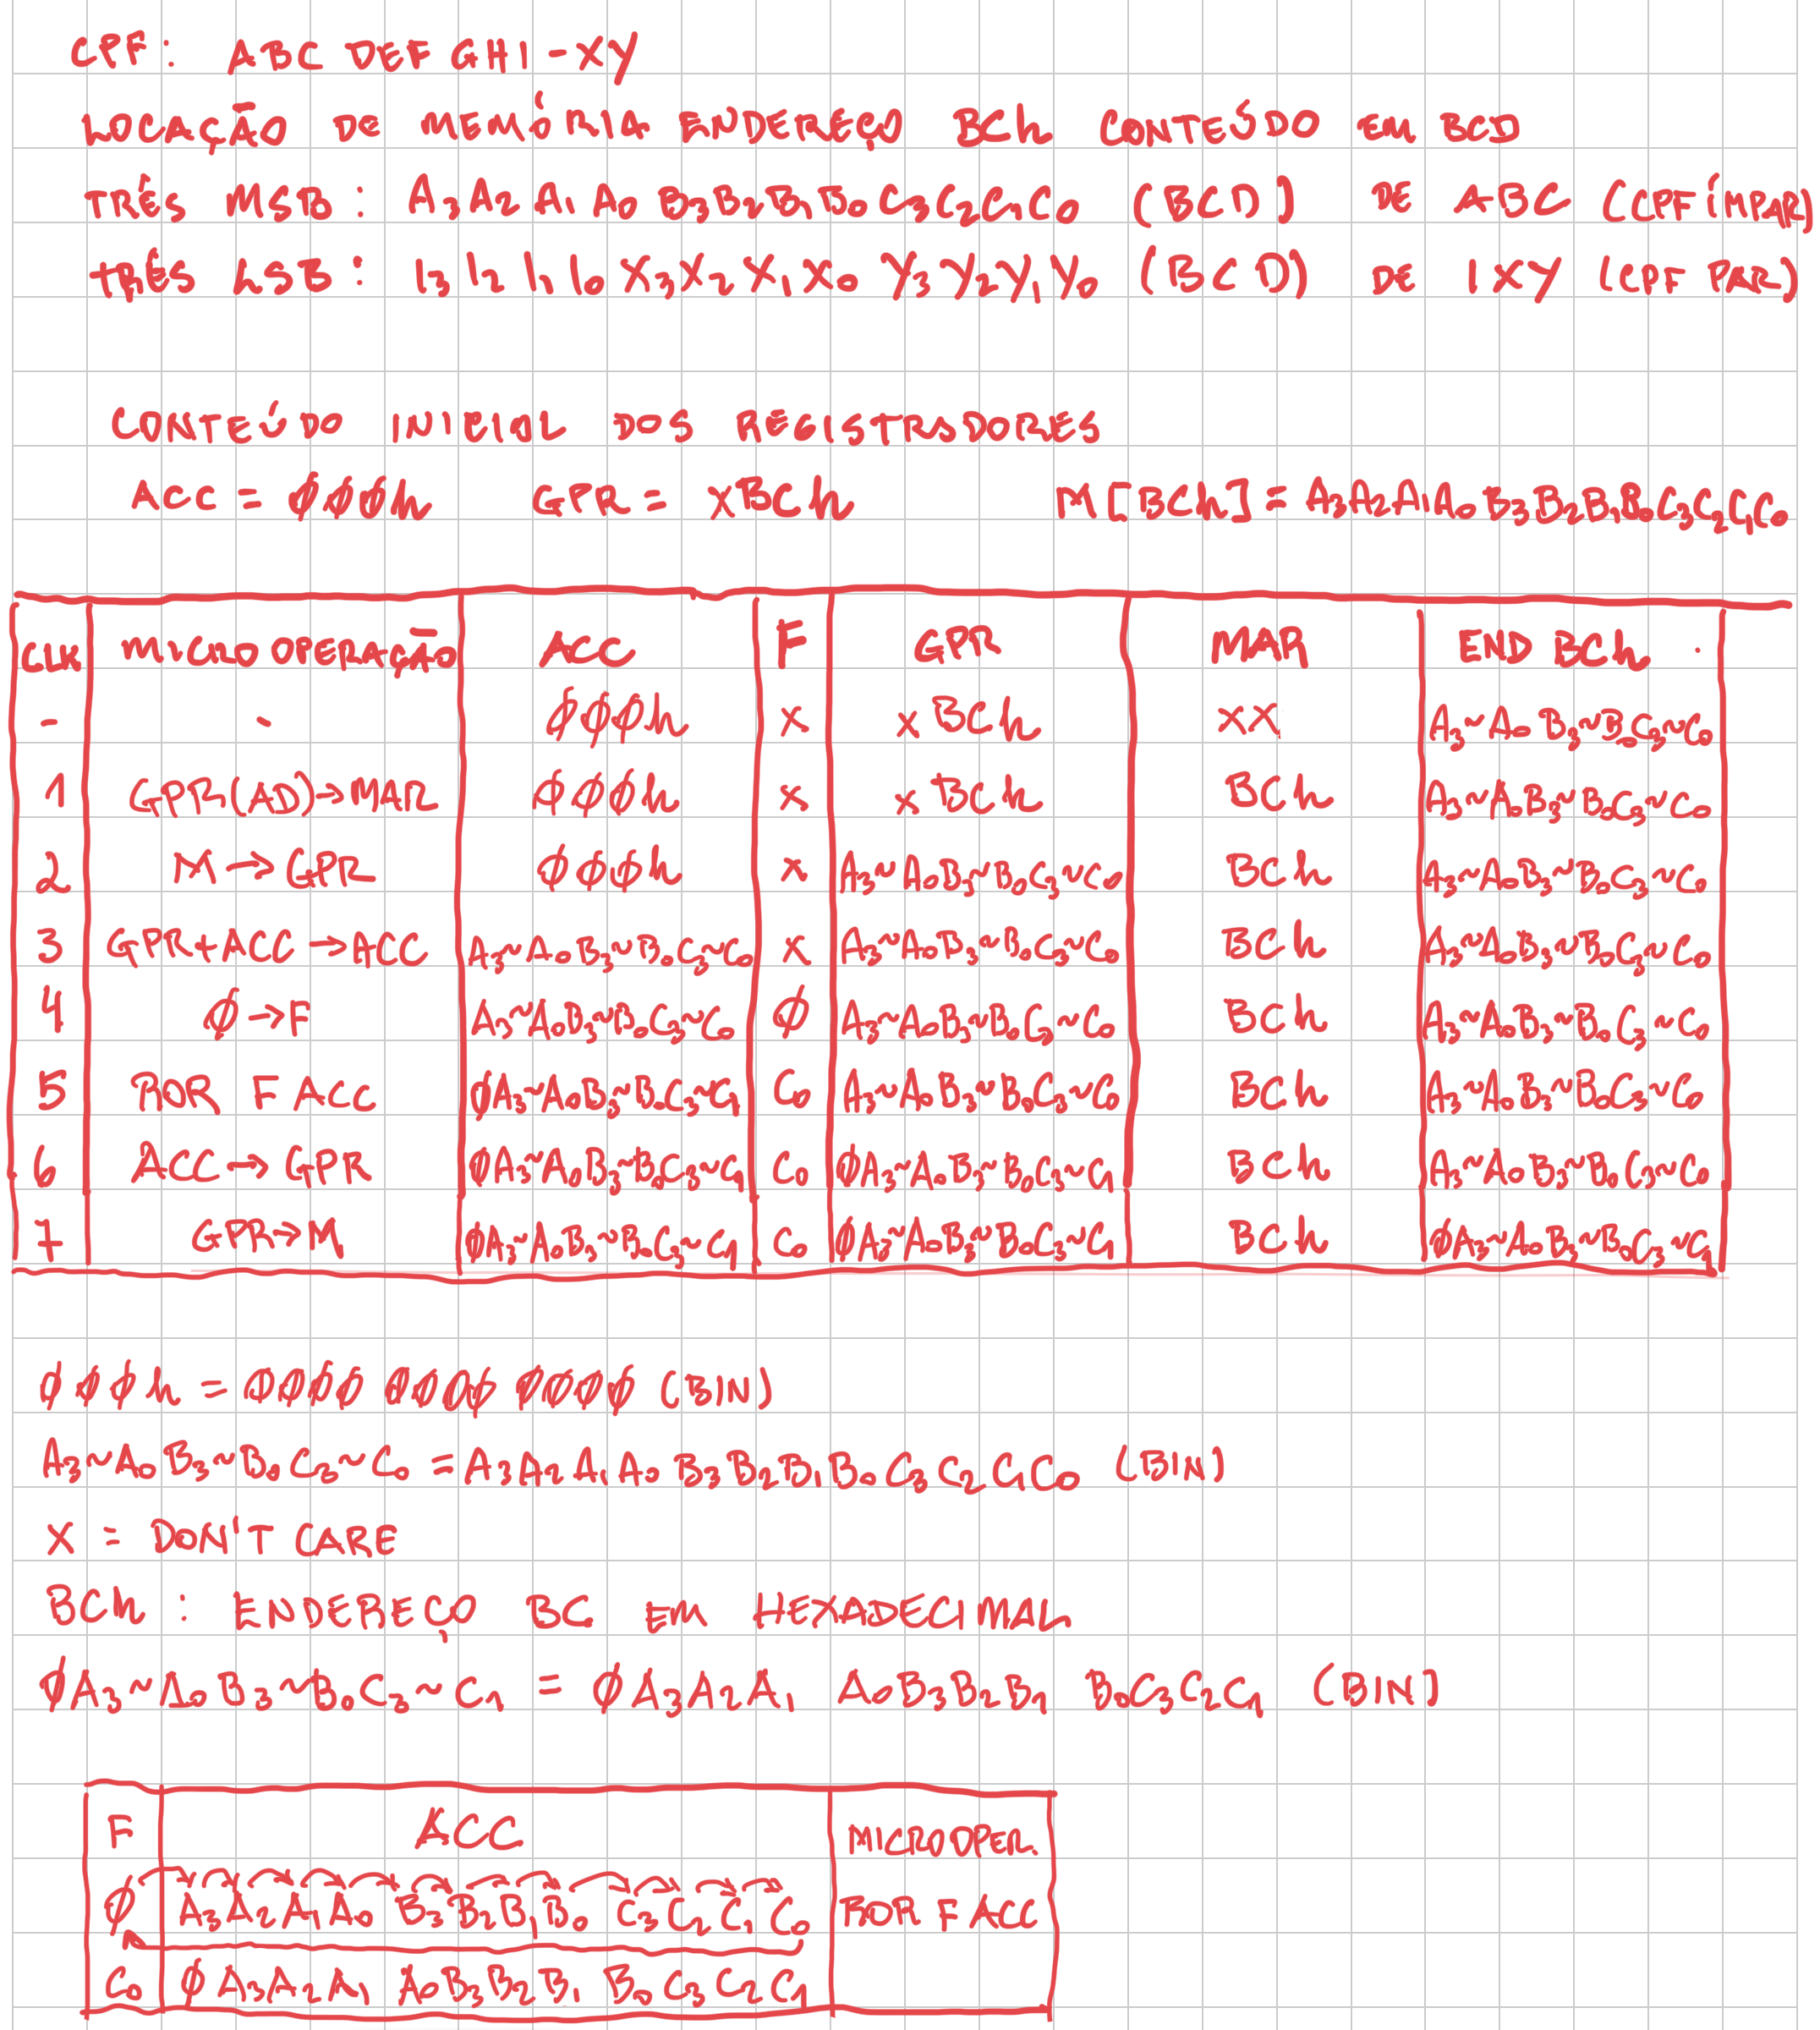 CPF: ABC DEF GHI-XY
LOCAÇÃO DE MEMÓRIA ENDEREÇO BCh CONTEÚDO EM BCD
TRÊS MSB: A3A2A1A0 B3B2B1B0 C3C2C1C0 (BCD) DE ABC (CPF ÍMPAR)
TRÊS LSB: I3I2I1I0 X3X2X1X0 Y3Y2Y1Y0 (BCD) DE IXY (CPF PAR)
CONTEÚDO INICIAL DOS REGISTRADORES
ACC = ØØØh GPR = xBCh M[BCh] = A3A2A1A0B3B2B1B0C3C2C1C0
CLK MICROOPERAÇÃO ACC F GPR MAR END BCh
- - ØØØh x xBCh xx A3~A0B3~B0C3~C0
1 GPR(AD)→MAR ØØØh x xBCh BCh A3~A0B3~B0C3~C0
2 M→GPR ØØØh x A3~A0B3~B0C3~C0 BCh A3~A0B3~B0C3~C0
3 GPR+ACC→ACC A3~A0B3~B0C3~C0 x A3~A0B3~B0C3~C0 BCh A3~A0B3~B0C3~C0
4 Ø→F A3~A0B3~B0C3~C0 Ø A3~A0B3~B0C3~C0 BCh A3~A0B3~B0C3~C0
5 ROR F ACC ØA3~A0B3~B0C3~C1 C0 A3~A0B3~B0C3~C0 BCh A3~A0B3~B0C3~C0
6 ACC→GPR ØA3~A0B3~B0C3~C1 C0 ØA3~A0B3~B0C3~C1 BCh A3~A0B3~B0C3~C0
7 GPR→M ØA3~A0B3~B0C3~C1 C0 ØA3~A0B3~B0C3~C1 BCh ØA3~A0B3~B0C3~C1
ØØØh = ØØØØ ØØØØ ØØØØ (BIN)
A3~A0B3~B0C3~C0 = A3A2A1A0 B3B2B1B0 C3C2C1C0 (BIN)
X = DON'T CARE
BCh : ENDEREÇO BC EM HEXADECIMAL
ØA3~A0B3~B0C3~C1 = ØA3A2A1 A0B3B2B1 B0C3C2C1 (BIN)
F ACC MICROOPER.
Ø A3A2A1A0 B3B2B1B0 C3C2C1C0 ROR F ACC
C0 ØA3A2A1 A0B3B2B1 B0C3C2C1